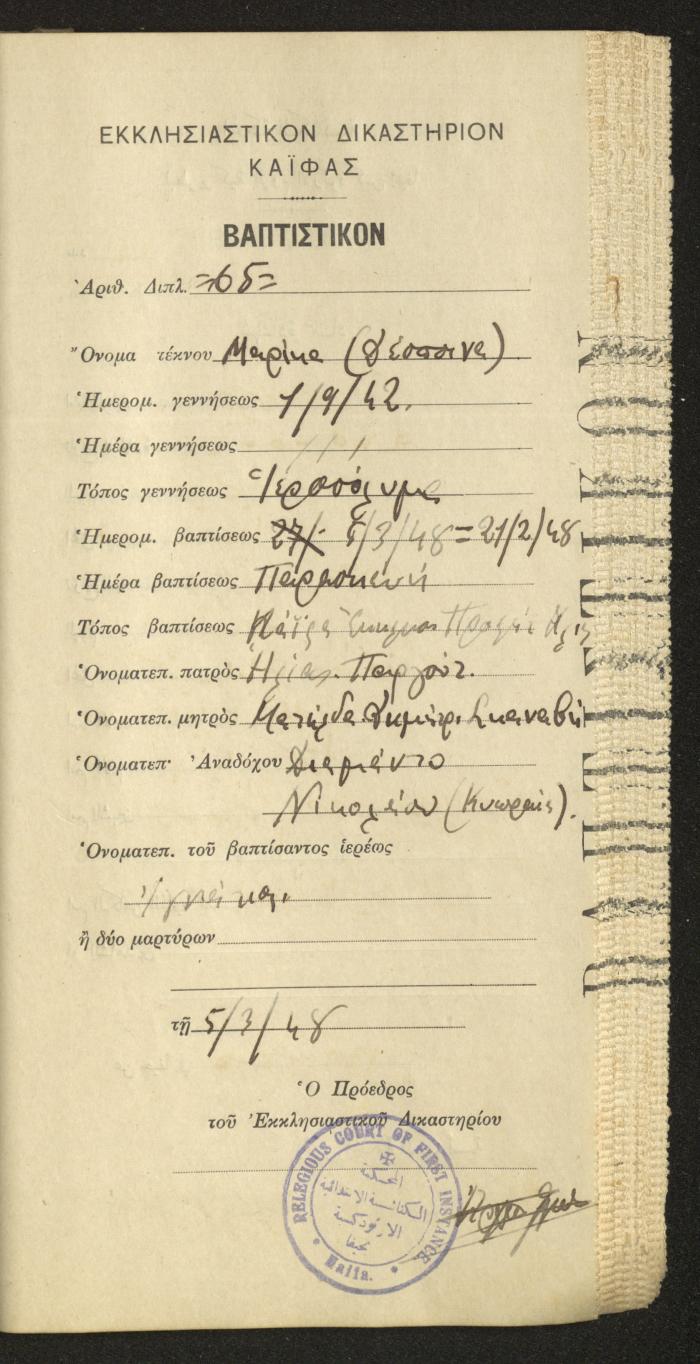 ΕΚΚΛΗΣΙΑΣΤΙΚΟΝ ΔΙΚΑΣΤΗΡΙΟΝ
ΚΑΪΦΑΣ
ΒΑΠΤΙΣΤΙΚΟΝ
Ἀριθ. Διπλ. =65=
Ὄνομα τέκνου Μαρίκα (Δέσποινα)
Ἡμερομ. γεννήσεως 1/9/42.
Ἡμέρα γεννήσεως / / /
Τόπος γεννήσεως Ἱερσόλυμα
Ἡμερομ. βαπτίσεως 5/3/48 = 21/2/48
Ἡμέρα βαπτίσεως Παρασκευή
Τόπος βαπτίσεως Κάϊφα Προφ. Ἠλι
Ὀνοματεπ. πατρὸς Ηλίας
Ὀνοματεπ. μητρὸς Ματίλδα Δημητρ. Σκαναβῆ
Ὀνοματεπ· Ἀναδόχου Διαμάντο
Νικολάου
Ὀνοματεπ. τοῦ βαπτίσαντος ἱερέως
ἢ δύο μαρτύρων
τῇ 5/3/48
Ὁ Πρόεδρος
τοῦ Ἐκκλησιαστικοῦ Δικαστηρίου
RELEGIOUS COURT OF FIRST INSTANCE
المحكمة
الكنائسية الابتدائية
الارثوذكسية
بحيفا
Haifa.